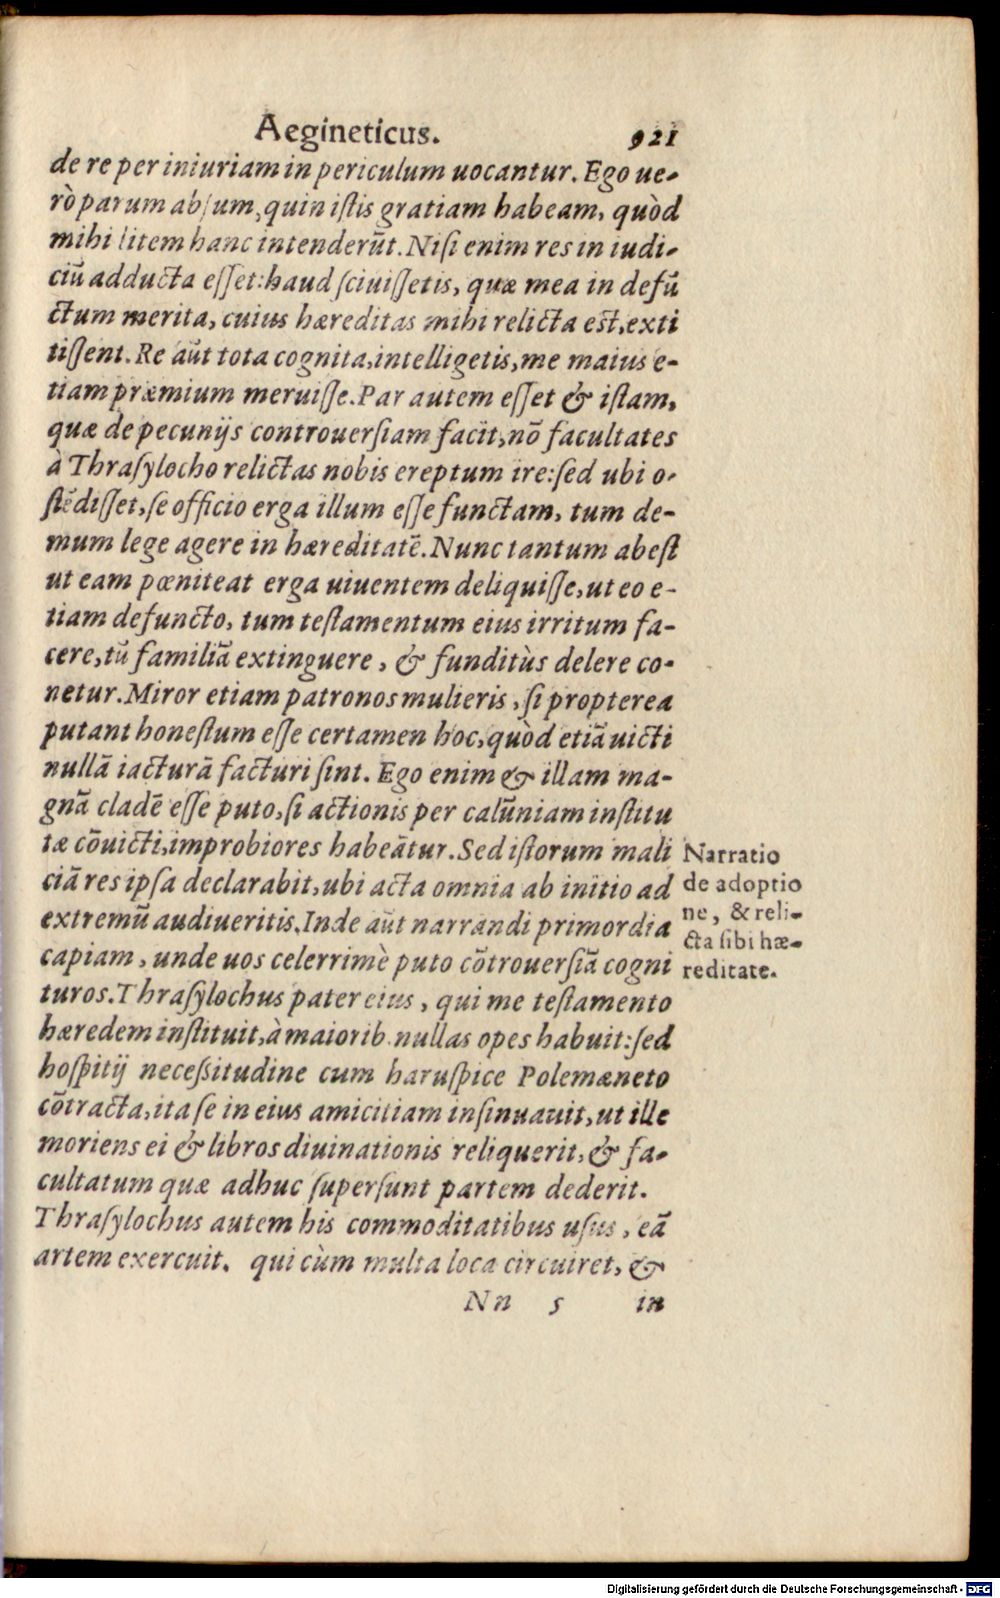 Aegineticus. 921
de re per iniuriam in periculum uocantur. Ego ue-
rò parum abſum, quin iſtis gratiam habeam, quòd
mihi litem hanc intenderũt. Niſi enim res in iudi-
ciũ adducta eſſet: haud ſciuiſſetis, quæ mea in defũ
ctum merita, cuius hæreditas mihi relicta est, exti
tiſſent. Re aũt tota cognita, intelligetis, me maius e-
tiam præmium meruiſſe. Par autem eſſet & iſtam,
quæ de pecunijs controuerſiam facit, nõ facultates
à Thraſylocho relictas nobis ereptum ire: ſed ubi o-
ſtẽdiſſet, ſe officio erga illum eſſe functam, tum de-
mum lege agere in hæreditatẽ. Nunc tantum abeſt
ut eam pœniteat erga uiuentem deliquiſſe, ut eo e-
tiam defuncto, tum teſtamentum eius irritum fa-
cere, tũ familiã extinguere, & funditùs delere co-
netur. Miror etiam patronos mulieris, ſi propterea
putant honeſtum eſſe certamen hoc, quòd etiã uicti
nullã iacturã facturi ſint. Ego enim & illam ma-
gnã cladẽ eſſe puto, ſi actionis per calũniam inſtitu
tæ cõuicti, improbiores habeãtur. Sed iſtorum mali
ciã res ipſa declarabit, ubi acta omnia ab initio ad
extremũ audiueritis. Inde aũt narrandi primordia
capiam, unde uos celerrimè puto cõtrouerſiã cogni
turos. Thraſylochus pater eius, qui me teſtamento
hæredem inſtituit, à maiorib. nullas opes habuit: ſed
hoſpitij neceſsitudine cum haruſpice Polemæneto
cõtracta, ita ſe in eius amicitiam inſinuauit, ut ille
moriens ei & libros diuinationis reliquerit, & fa-
cultatum quæ adhuc ſuperſunt partem dederit.
Thraſylochus autem his commoditatibus uſus, eã
artem exercuit. qui cùm multa loca circuiret, &
Nn 5 in
Narratio
de adoptio
ne, & reli-
cta ſibi hæ-
reditate.
Digitalisierung gefördert durch die Deutsche Forschungsgemeinschaft - DFG